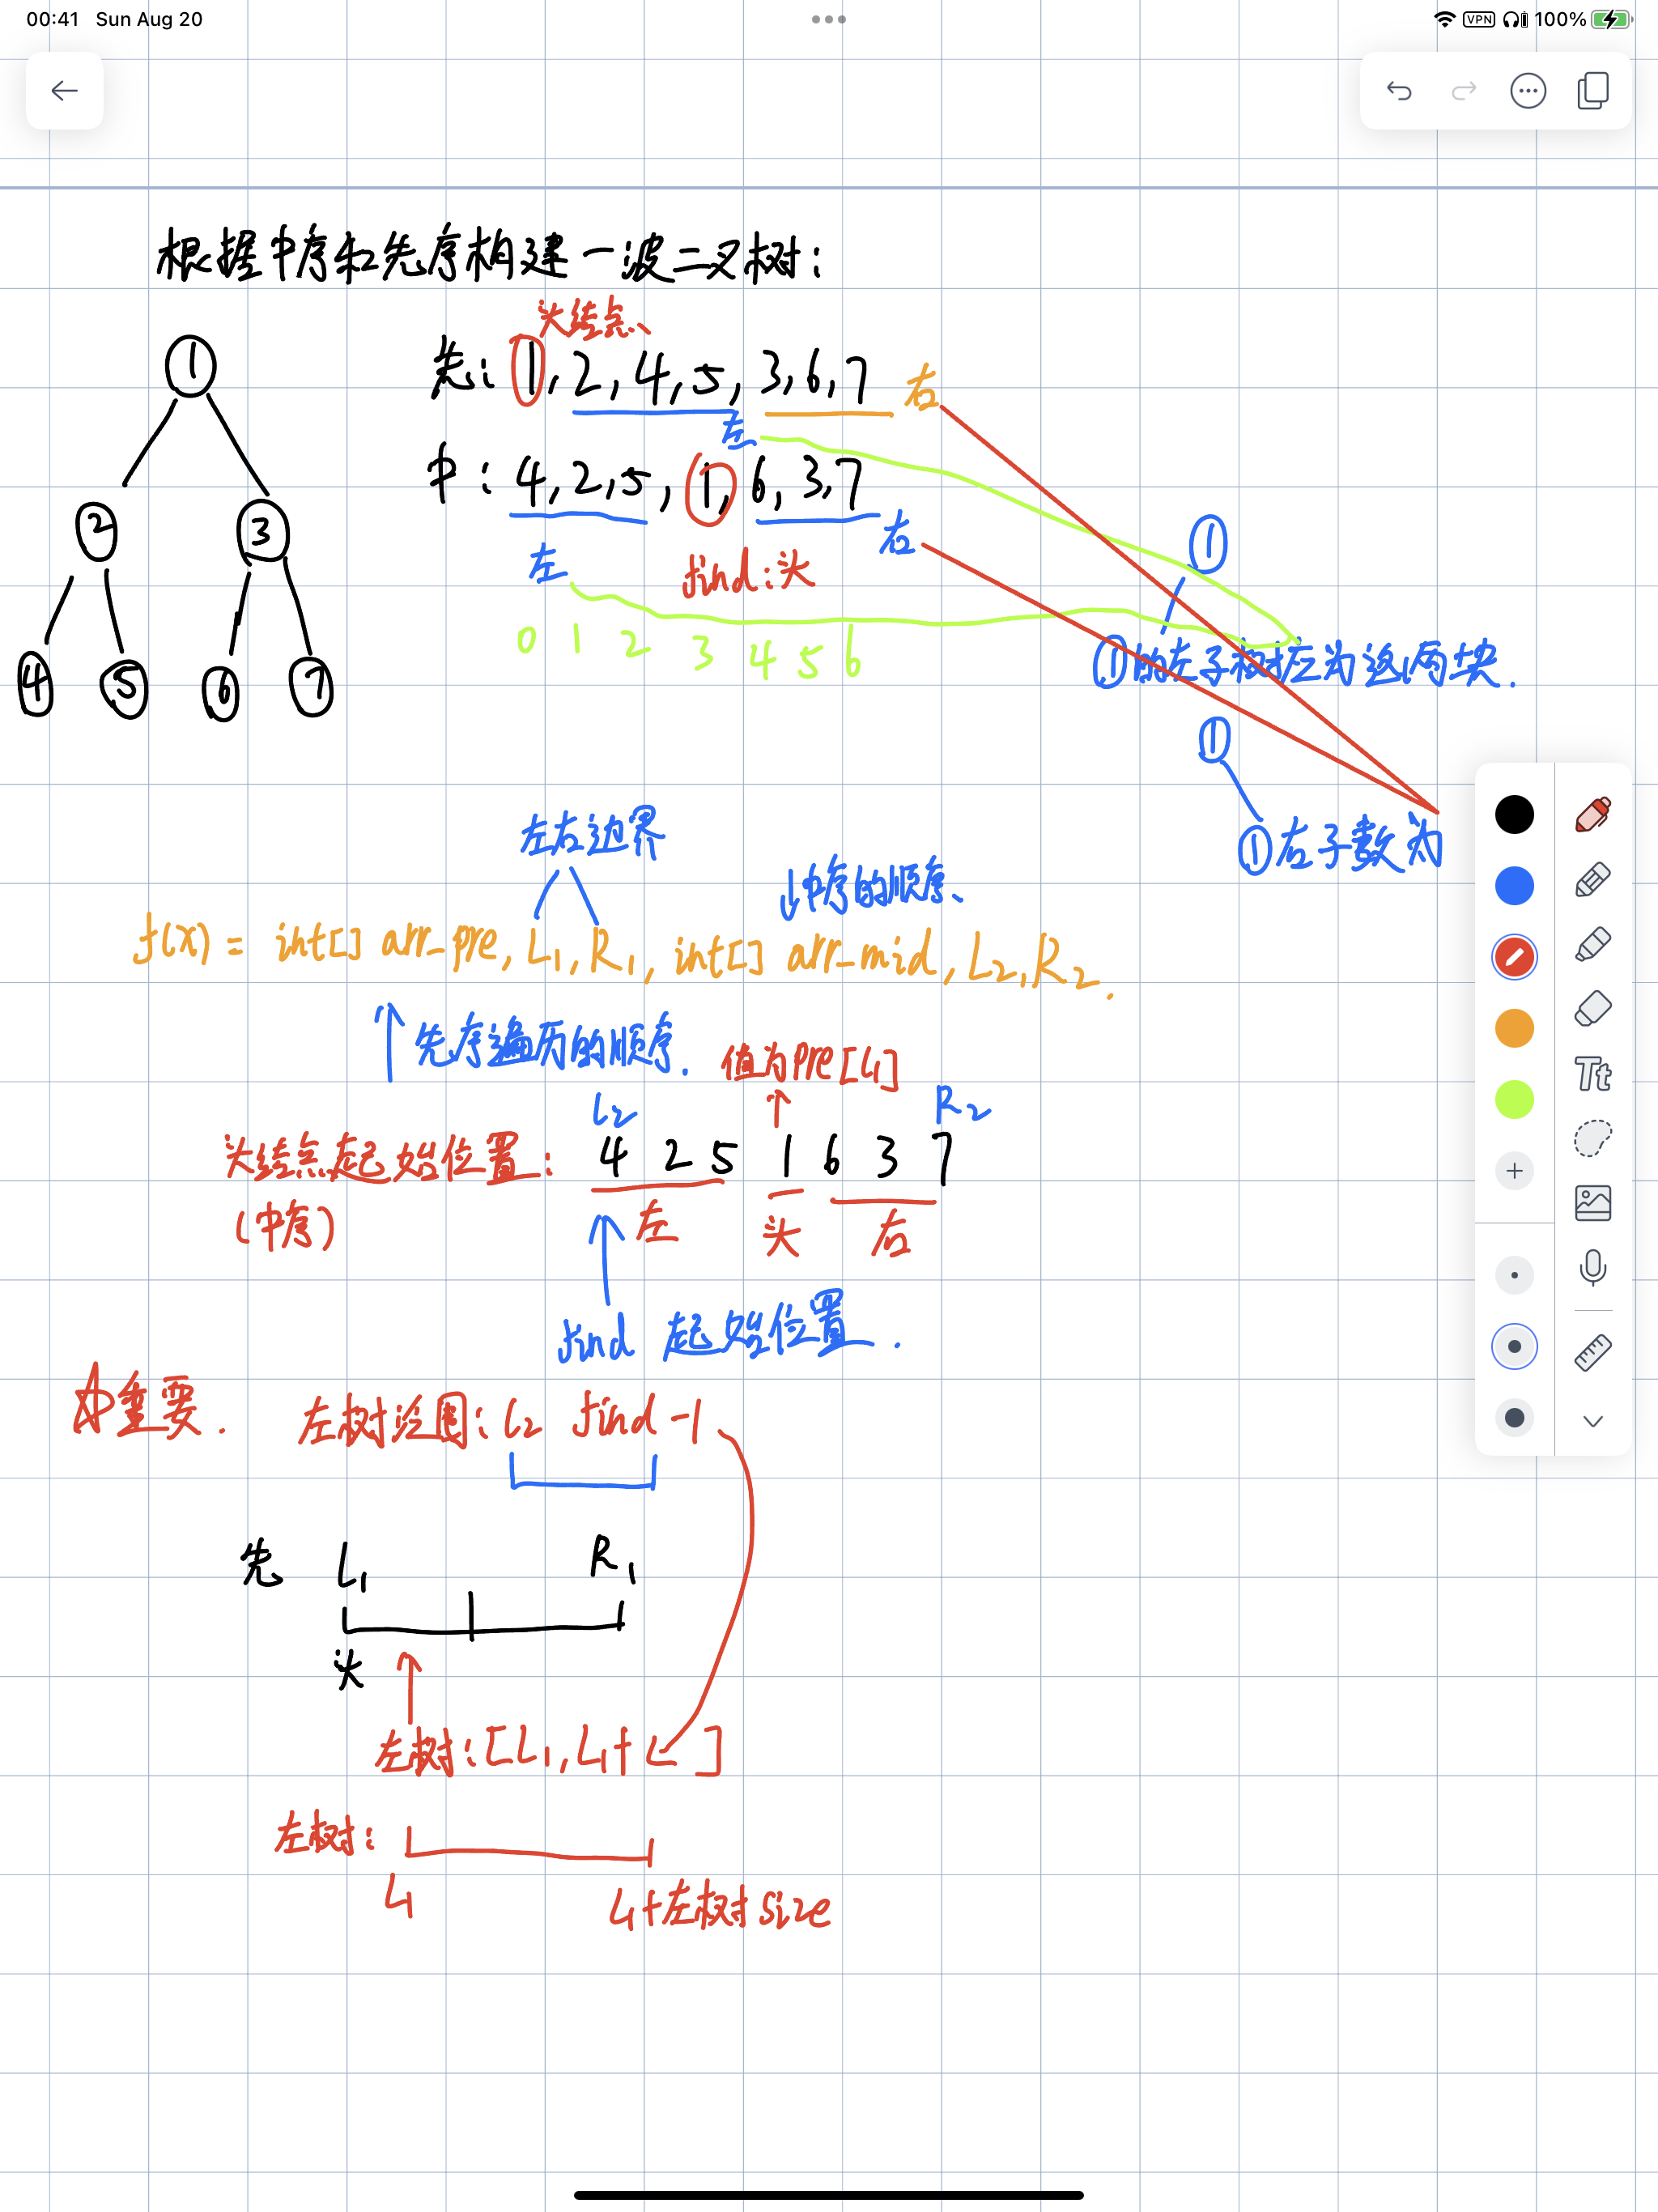 00:41 Sun Aug 20
VPN 100%
根据中序和先序构建一波二叉树:
头结点
先: 1, 2, 4, 5, 3, 6, 7 右
左
中: 4, 2, 5, 1, 6, 3, 7
左 find:头 右
0 1 2 3 4 5 6
1
2 3
4 5 6 7
①
①的左子树应为这两块.
①
①右子数为
左右边界
↓中序的顺序、
f(x) = int[] arr_pre, L1, R1, int[] arr_mid, L2, R2.
↑先序遍历的顺序. 值为pre[L1]
L2 ↑ R2
头结点起始位置: 4 2 5 1 6 3 7
(中序) 左 头 右
find 起始位置.
☆重要. 左树范围: L2 find -1
先 L1 R1
头
左树: [L1, L1+ ]
左树:
L1 L1+左树size
Tt